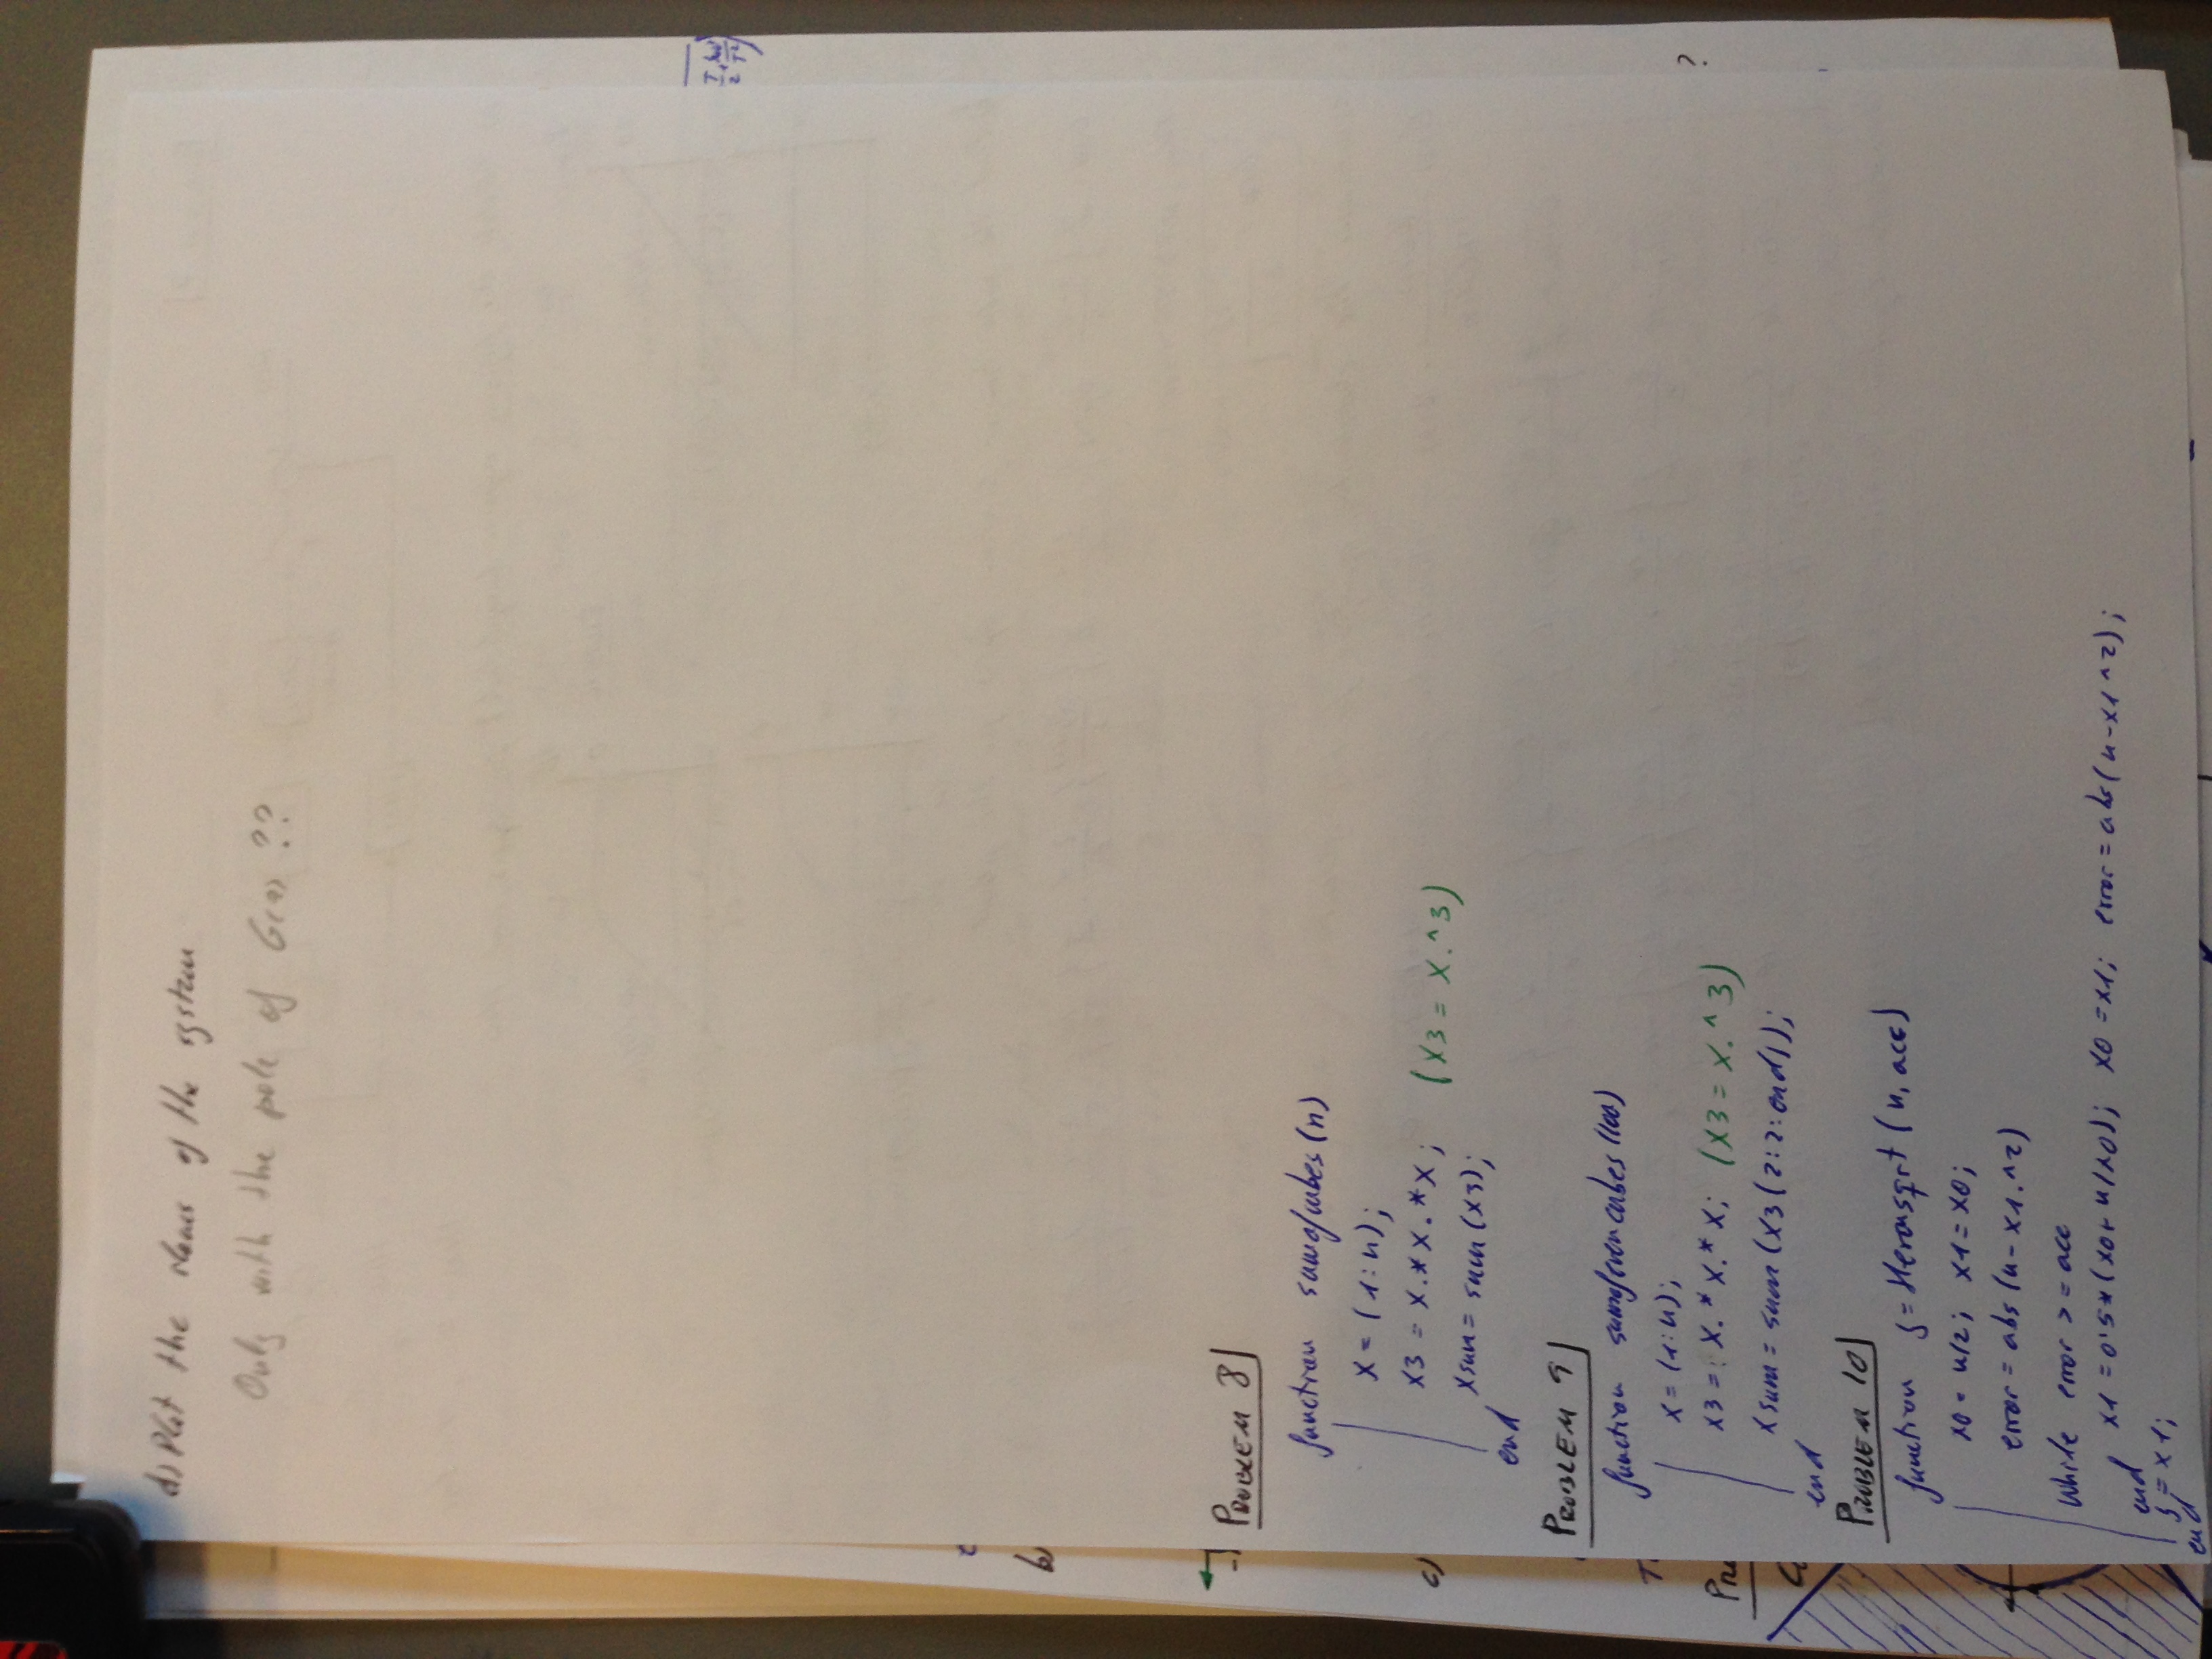 d) Plot the of the system
Only with the pole of ??
PROBLEM 8
function sumofcubes(n)
x = (1:n);
x3 = x.*x.*x; (x3 = x.^3)
xsum = sum(x3);
end
PROBLEM 9
function sumofevencubes(100)
x = (1:n);
x3 = x.*x.*x; (x3 = x.^3)
xsum = sum(x3(2:2:end));
end
PROBLEM 10
function = Heronsqrt(n, acc)
x0 = n/2; x1 = x0;
error = abs(n-x1.^2)
while error >= acc
x1 = 0.5*(x0+n/x0); x0 = x1; error = abs(n-x1^2);
end
= x1;
end
b)
c)
?